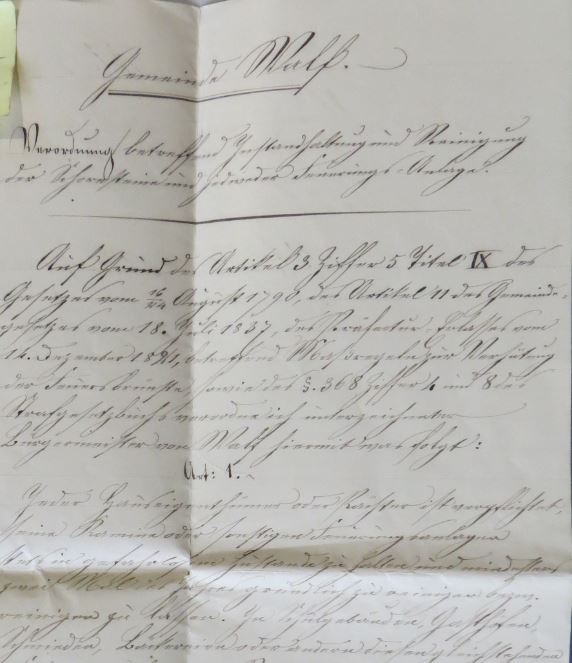 Gemeinde Walf.
Verordnung betreffend Instandhaltung und Reinigung
der Schornsteine und jedweder Feuerungs-Anlage.
Auf Grund des Artikel 3 Ziffer 5 Titel IX des
Gesetzes vom 16/24 August 1790, des Artikel 11 des Gemeinde-
gesetzes vom 18. Juli 1837, des Präfectur-Erlasses vom
14. Dezember 1821, betreffend Maßregeln zur Verhütung
der Feuersbrünste, sowie des §. 368 Ziffer 4 und 8 des
Strafgesetzbuchs verordne ich unterzeichneter
Bürgermeister von Walf hiermit was folgt:
Art: 1.
Jeder Hauseigenthümer oder Pächter ist verpflichtet,
seine Kamine oder sonstigen Feuerungsanlagen
stets in gefahrlosem Zustande zu halten und mindestens
zwei Mal des Jahres gründlich zu reinigen bezw.
reinigen zu lassen. In Schulgebäuden, Gasthöfen,
Schmieden, Bäckereien oder andern diesen gleichstehenden